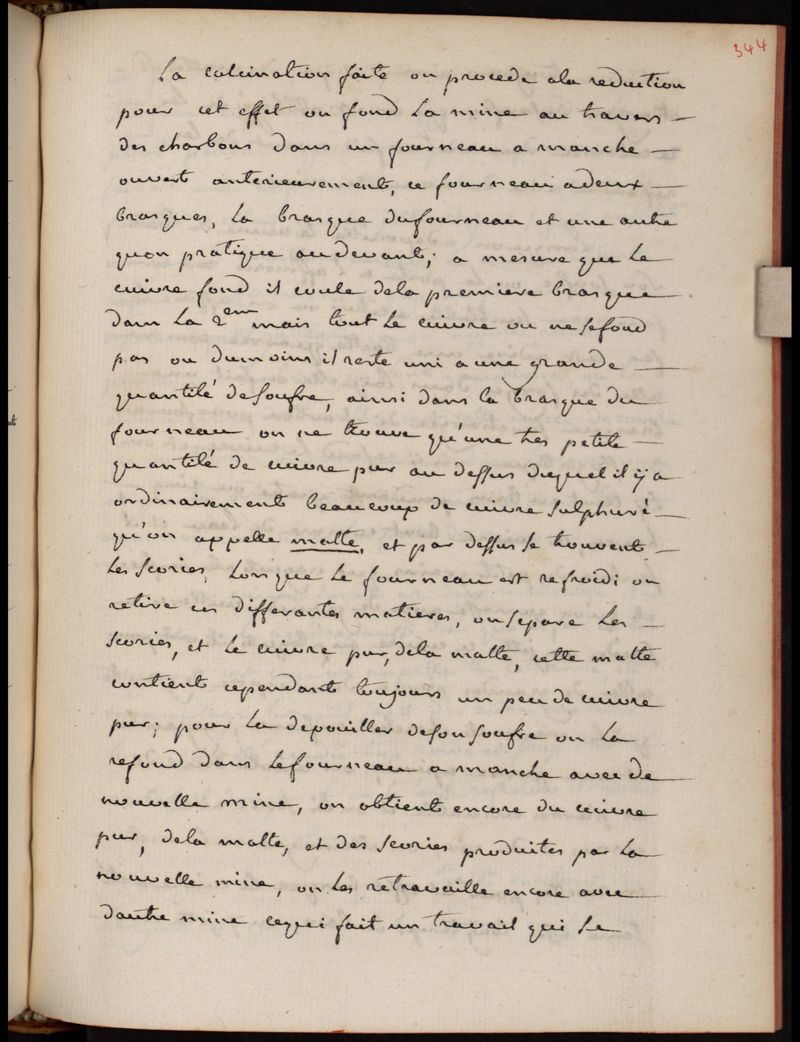 344
La calcination faite on procede ala reduction
pour cet effet on fond la mine au travers —
des charbons dans un fourneau a manche —
ouvert anterieurement, ce fourneau adeux —
brasques, la brasque dufourneau et une autre
quon pratique audevant; a mesure que le
cuivre fond il coule dela premiere brasque
dans la 2eme mais tout le cuivre ou ne sefond
pas ou dumoins il reste uni a une grande —
quantité desoufre, ainsi dans la brasque du
fourneau on ne trouve qu'une tres petite —
quantité de cuivre pur au dessus duquel il y a
ordinairement beaucoup de cuivre sulphuré —
qu'on appelle matte, et par dessus se trouvent —
les scories, lorsque le fourneau est refroidi on
retire ces differantes matieres, on separe les —
scories, et le cuivre pur, dela matte, cette matte
contient cependant toujours un peu de cuivre
pur; pour la depouiller deson soufre on la
refond dans lefourneau a manche avec de —
nouvelle mine, on obtient encore du cuivre
pur, dela matte, et des scories produites par la
nouvelle mine, on les retravaille encore avec
dautre mine cequi fait un travail qui se